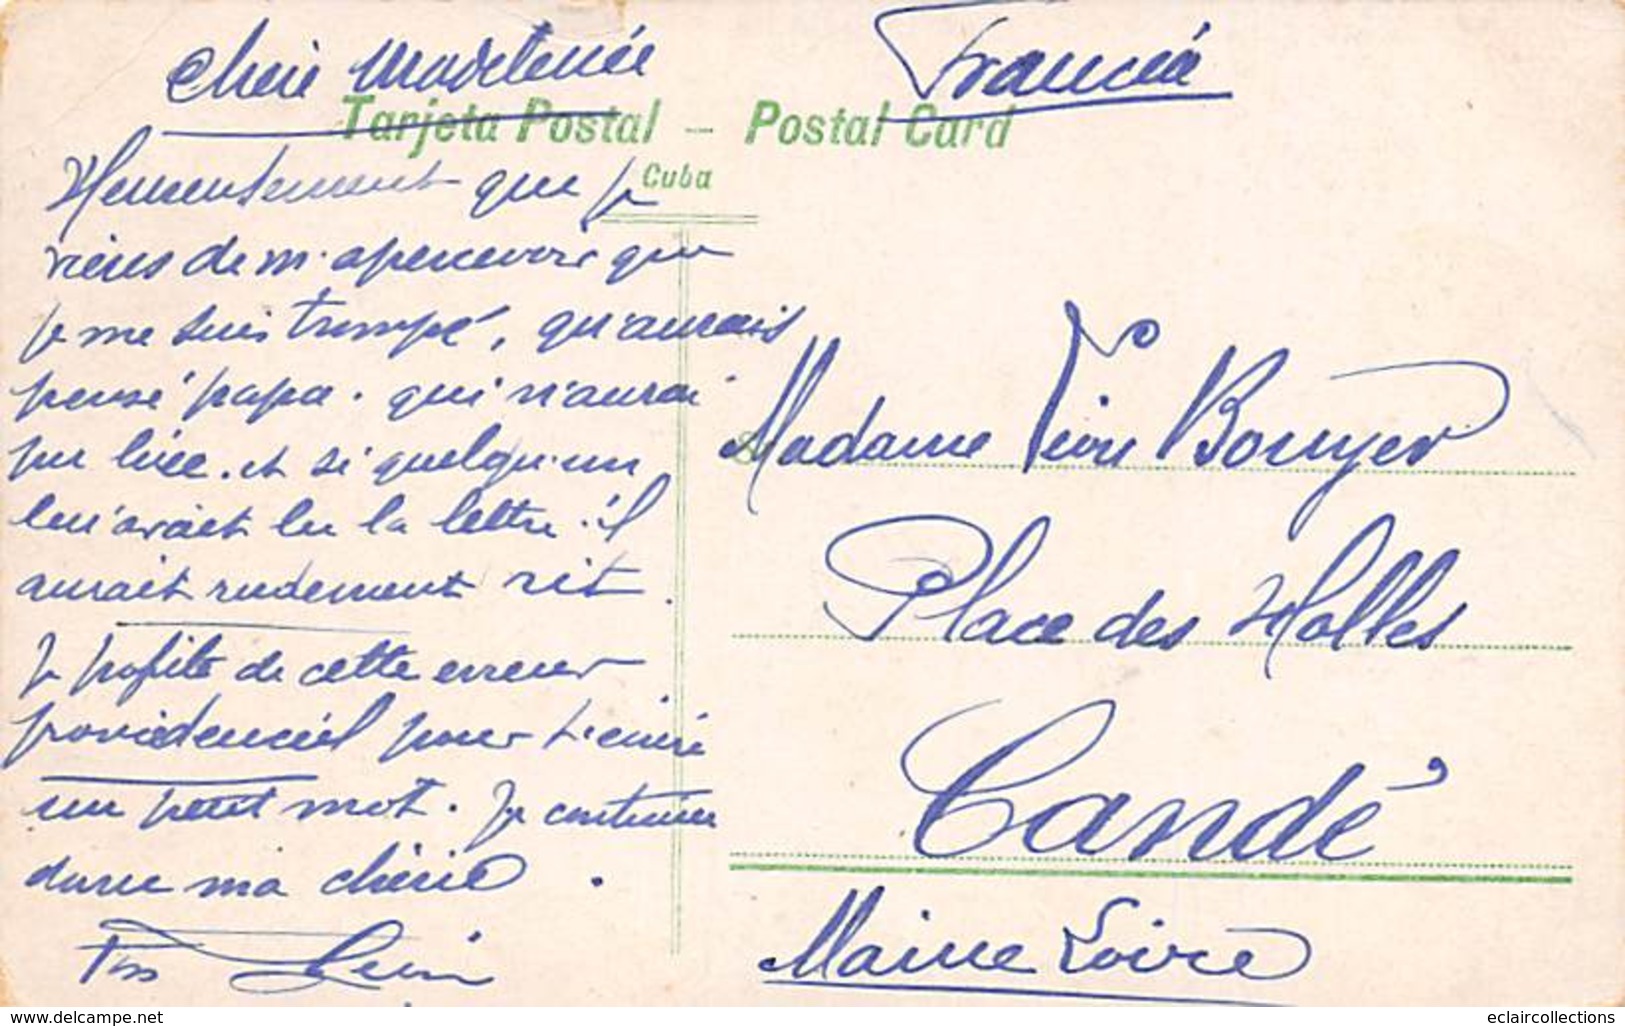 Cherie Madeleine
Francia
Tarjeta Postal – Postal Card
Cuba
Heureusement que je
viens de m'apercevoir que
je me suis trompé, qu'aurais
pensé papa. qui n'aurai
pu lire. et si quelqu'un
lui avait lu la lettre. il
aurait rudement rit.
Je profite de cette erreur
providenciel pour t'écrire
un petit mot. Je continue
donc ma chérie.
Ton
Madame Bouyer
Place des Halles
Candé
Maine Loire
www.delcampe.net
eclaircollections